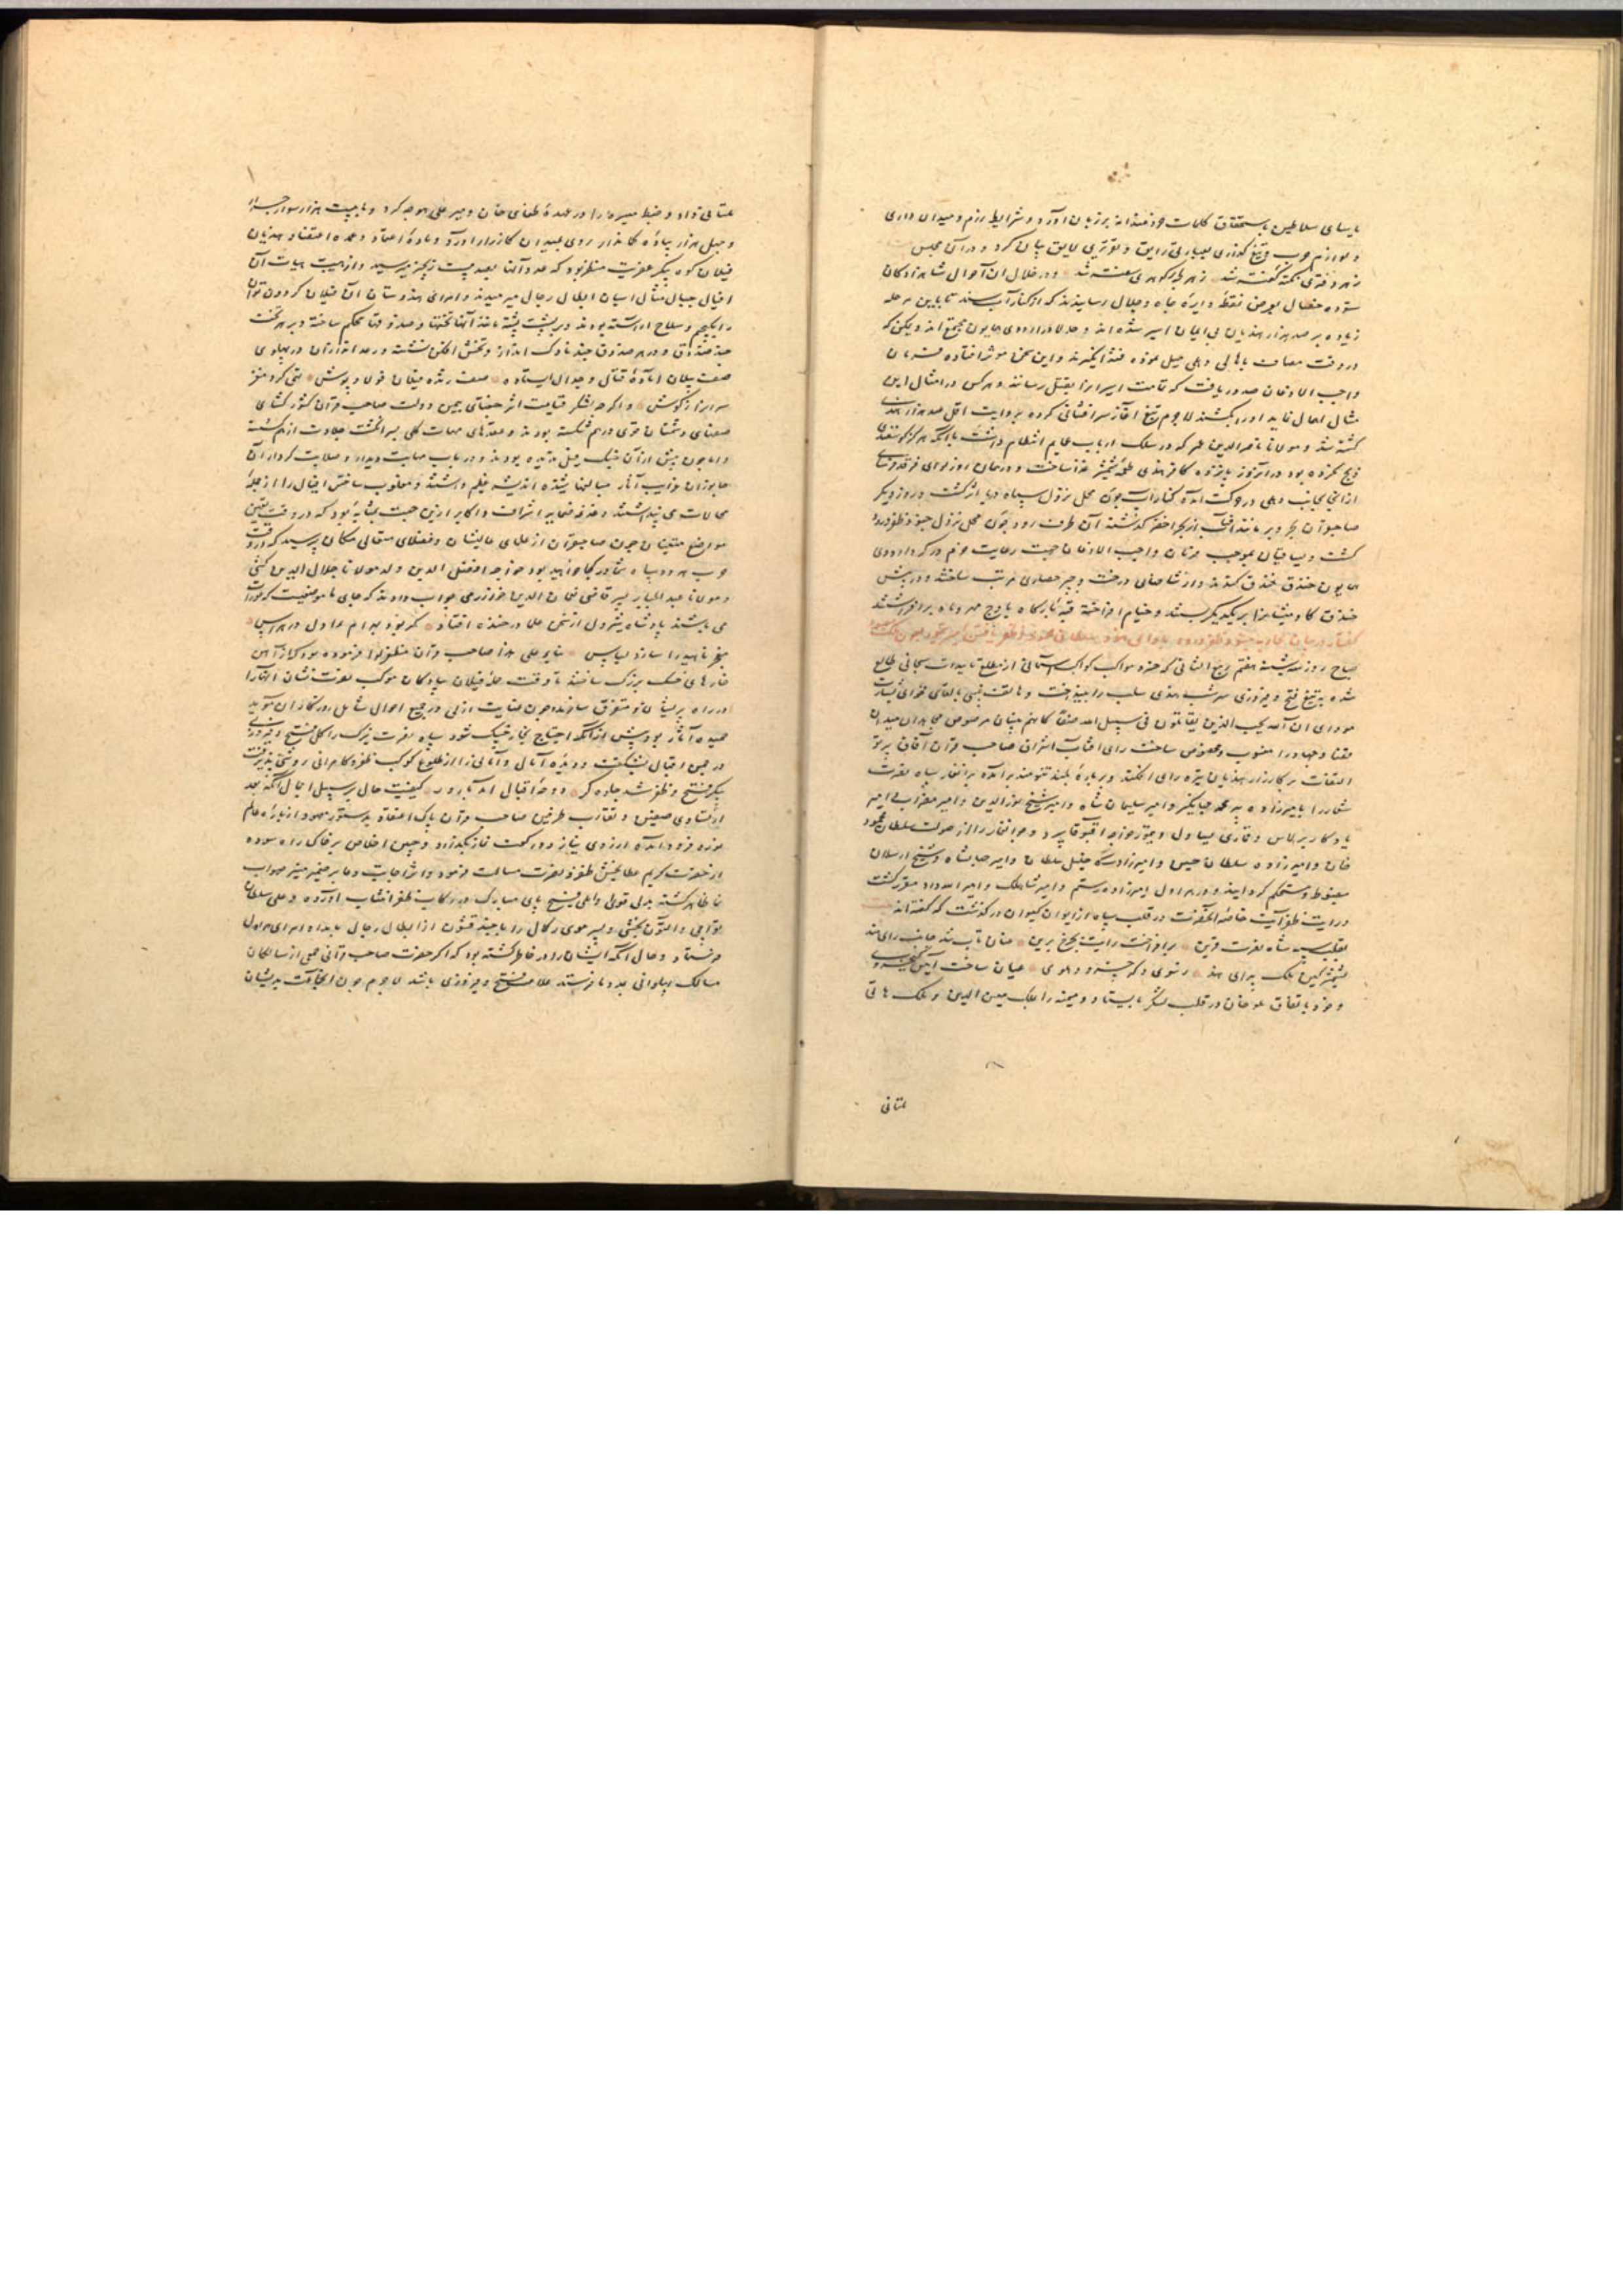 با سای سلاطین باستحقاق کلمات خردمندانه بر زبان آورد و شرایط رزم و میدان داری
و لوازم حرب و تیغ گذاری بعبارتی رایق و تقریری لایق بیان کرد و در آن مجلس
زهر دفتری نکته گفته شد زهر گوهری سفته شد و در خلال آن احوال شاهزادگان
ستوده خصال بعرض نقطه دایره جاه و جلال رسانیدند که از کنار آب سند تا باین مرحله
زیاده بر صد هزار هندیان بی ایمان اسیر شده اند و حالا در اردوی همایون مجتمع اند و یمکن که
در وقت مصاف باهالی دهلی میل نموده فتنه انگیزند و این سخن موثر افتاده فرمان
واجب الاذعان صدور یافت که تمامت اسیرانرا بقتل رسانند و هر کس در امتثال این
مثال اهمال نماید او را بکشند لاجرم تیغ آغاز سرافشانی کرده بروایت اقل صد هزار هندی
کشته شد و مولانا ناصرالدین عمر که در سلک ارباب عمایم انتظام داشت با آنکه هرگز گوسفندی
ذبح نکرده بود در آنروز پانزده کافر هندی طعمه شمشیر غذا ساخت و در همان روز لوای فرقدفرسای
از آنجا بجانب دهلی در حرکت آمده کنار آب جون محل نزول سپاه دریا اثر گشت و روز دیگر
صاحبقران بحر و بر مانند آفتاب از بحر اخضر گذشته آن طرف رود جون محل نزول جنود ظفرورود
گشت و سپاهیان بموجب فرمان واجب الاذعان جهت رعایت حزم در گرد اردوی
همایون خندق کندند و از شاخهای درخت و چپر حصاری مرتب ساختند و در پیش
خندق گاومیشانرا بر یکدیگر بستند و خیام افراخته قبه بارگاه باوج مهر و ماه برافراشتند
گفتار در بیان محاربه جنود ظفر ورود با
صباح روز سه شنبه هفتم ربیع الثانی که خسرو مواکب کواکب آسمانی از مطلع تاییدات سبحانی طالع
شده بتیغ فتح و فیروزی سر شب هندی سلب را بینداخت و هاتف غیبی بالقای فحوای بشارت
مودای ان الله یحب الذین یقاتلون فی سبیل الله صفا کانهم بنیان مرصوص مجاهدان میدان
غزا و جهاد را منصوب و مخصوص ساخت رای آفتاب اشراق صاحب قران آفاق پرتو
التفات بر کارزار هندیان تیره رای افکند و بر باره بلند تنومند برآمده برانغار سپاه نصرت
شعار را بامیرزاده پیر محمد جهانگیر و امیر سلیمان شاه و امیر شیخ نورالدین و امیر مضراب و امیر
یادکار برلاس و قماری یساول و تیمور خواجه اقبوقا سپرد و جوانغار را از صولت سلطان محمود
خان و امیرزاده سلطان حسین و امیرزاده خلیل سلطان و امیر جهانشاه و شیخ ارسلان
مضبوط و مستحکم گردانید و در هراول امیرزاده رستم و امیر شاهملک و امیر الله داد مقرر گشت
و رایت ظفر آیت خاصه آنحضرت در قلب سپاه از ایوان کیوان در گذشت که گفته اند
بقلب سپه شاه نصرت قرین برافراخت رایت بچرخ برین عنان تاب شد جانب رای هند
ز سوی دگر خسرو دهلوی عیان ساخت آیین کیخسروی
و خود باتفاق ملو خان در قلب لشکر بایستاد و میمنه را بملک معین الدین و ملک هانی
ملتانی
ملتانی داد و ضبط میسره را در عهده طغای خان و میر علی هوجه کرد و با بیست هزار سوار جرار
و چهل هزار پیاده کارزار روی بمیدان کارزار آورد و ماده اعتماد و عمده اعتضاد هندیان
فیلان کوه پیکر عفریت منظر بود که عدد آنها بصد و بیست زنجیر میرسید و از هیبت هیات آن
افیال جبال مثال اسبان ابطال رجال میرمیدند و امرای هندوستان آن فیلان گردون توان
را بکجیم و سلاح آراسته بودند و بر پشت پشته مانند آنها تختها و صندوقها محکم ساخته و بر هر تخت
چند صندوق و در هر صندوق چند ناوک انداز و تخش افکن نشسته و رعد اندازان در پهلوی
صف پیلان آماده قتال و جدال ایستاده صف زده فیلان فولاد پوش تهی کرد مغز
سرانرا ز گوش و اگرچه لشکر قیامت اثر جغتای بیمن دولت صاحب قران کشور گشای
صفهای دشمنان قوی در هم شکسته بودند و عقدهای مهمات کلی بسر انگشت جلادت از هم گسسته
و اما چون پیش از آن جنگ فیل ندیده بودند و در باب مهابت دیدار و صلابت کردار آن
جانوران غرایب آثار مبالغها شنیده اندیشه عظیم داشتند و مغلوب ساختن افیال را از جمله
محالات می پنداشتند و دغدغه ضمایر اشراف و اکابر ازین جهت بمثابه بود که در وقت تعیین
مواضع متعینان چون صاحبقران از علمای عالیشان و فضلای متعالی مکان پرسید که در وقت
حرب هر دو سپاه شما در کجا خواهید بود خواجه افضل الدین ولد مولانا جلال الدین کشی
و مولانا عبد الجبار پسر قاضی نعمان الدین خوارزمی جواب دادند که جای ما موضعیست که عورات
می باشند پادشاه شیردل از سخن علما در خنده افتاد که بود بهرام هراول در هراس
چتر ناهید را سازد لباس بنابر علی هذا صاحب قران مظفر لوا فرموده بود که از آهن
خارهای خسک بزرگ ساختند تا وقت حمله فیلان پیادگان موکب نصرت نشان آنها را
در راه پریشان و متفرق سازند و چون عنایت ازلی در جمیع احوال شامل روزگار آن موید
حمیده آثار بود پیش از آنکه احتیاج بخار خسک شود سپاه نصرت شرک را گل فتح و فیروزی
در چمن اقبال بشکفت و دیده آمال و امانی را از طلوع کوکب ظفر و کامرانی روشنی پذیرفت
پیکر فتح و ظفر شد جلوه گر دوحه اقبال آمد بارور کیفیت حال بر سبیل اجمال آنکه بعد
از تساوی صفین و تقارب طرفین صاحب قران پاک اعتقاد بدستور معهود از باره عالم
نورد فرود آمده از روی نیاز دو رکعت نماز بگذارد و جبین اخلاص بر خاک راه سوده
از حضرت کریم عطا بخش ظفر و نصرت مسالت فرمود و اثر اجابت دعا بر ضمیر منیر صواب
نما ظاهر گشته بدل قوی و املی فسیح پای مبارک در رکاب ظفر انتساب آورده و علی سلطان
تواچی و التون بخشی و پسر موسی رکمال را با چند قشون از ابطال رجال بامداد امرای هراول
فرستاد و حال آنکه ایشان را در خاطر گشته بود که اگر حضرت صاحب قرانی جمعی از سالکان
مسالک پهلوانی بمدد ما فرستد علامت فتح و فیروزی باشد لاجرم چون آن جماعت بدیشان